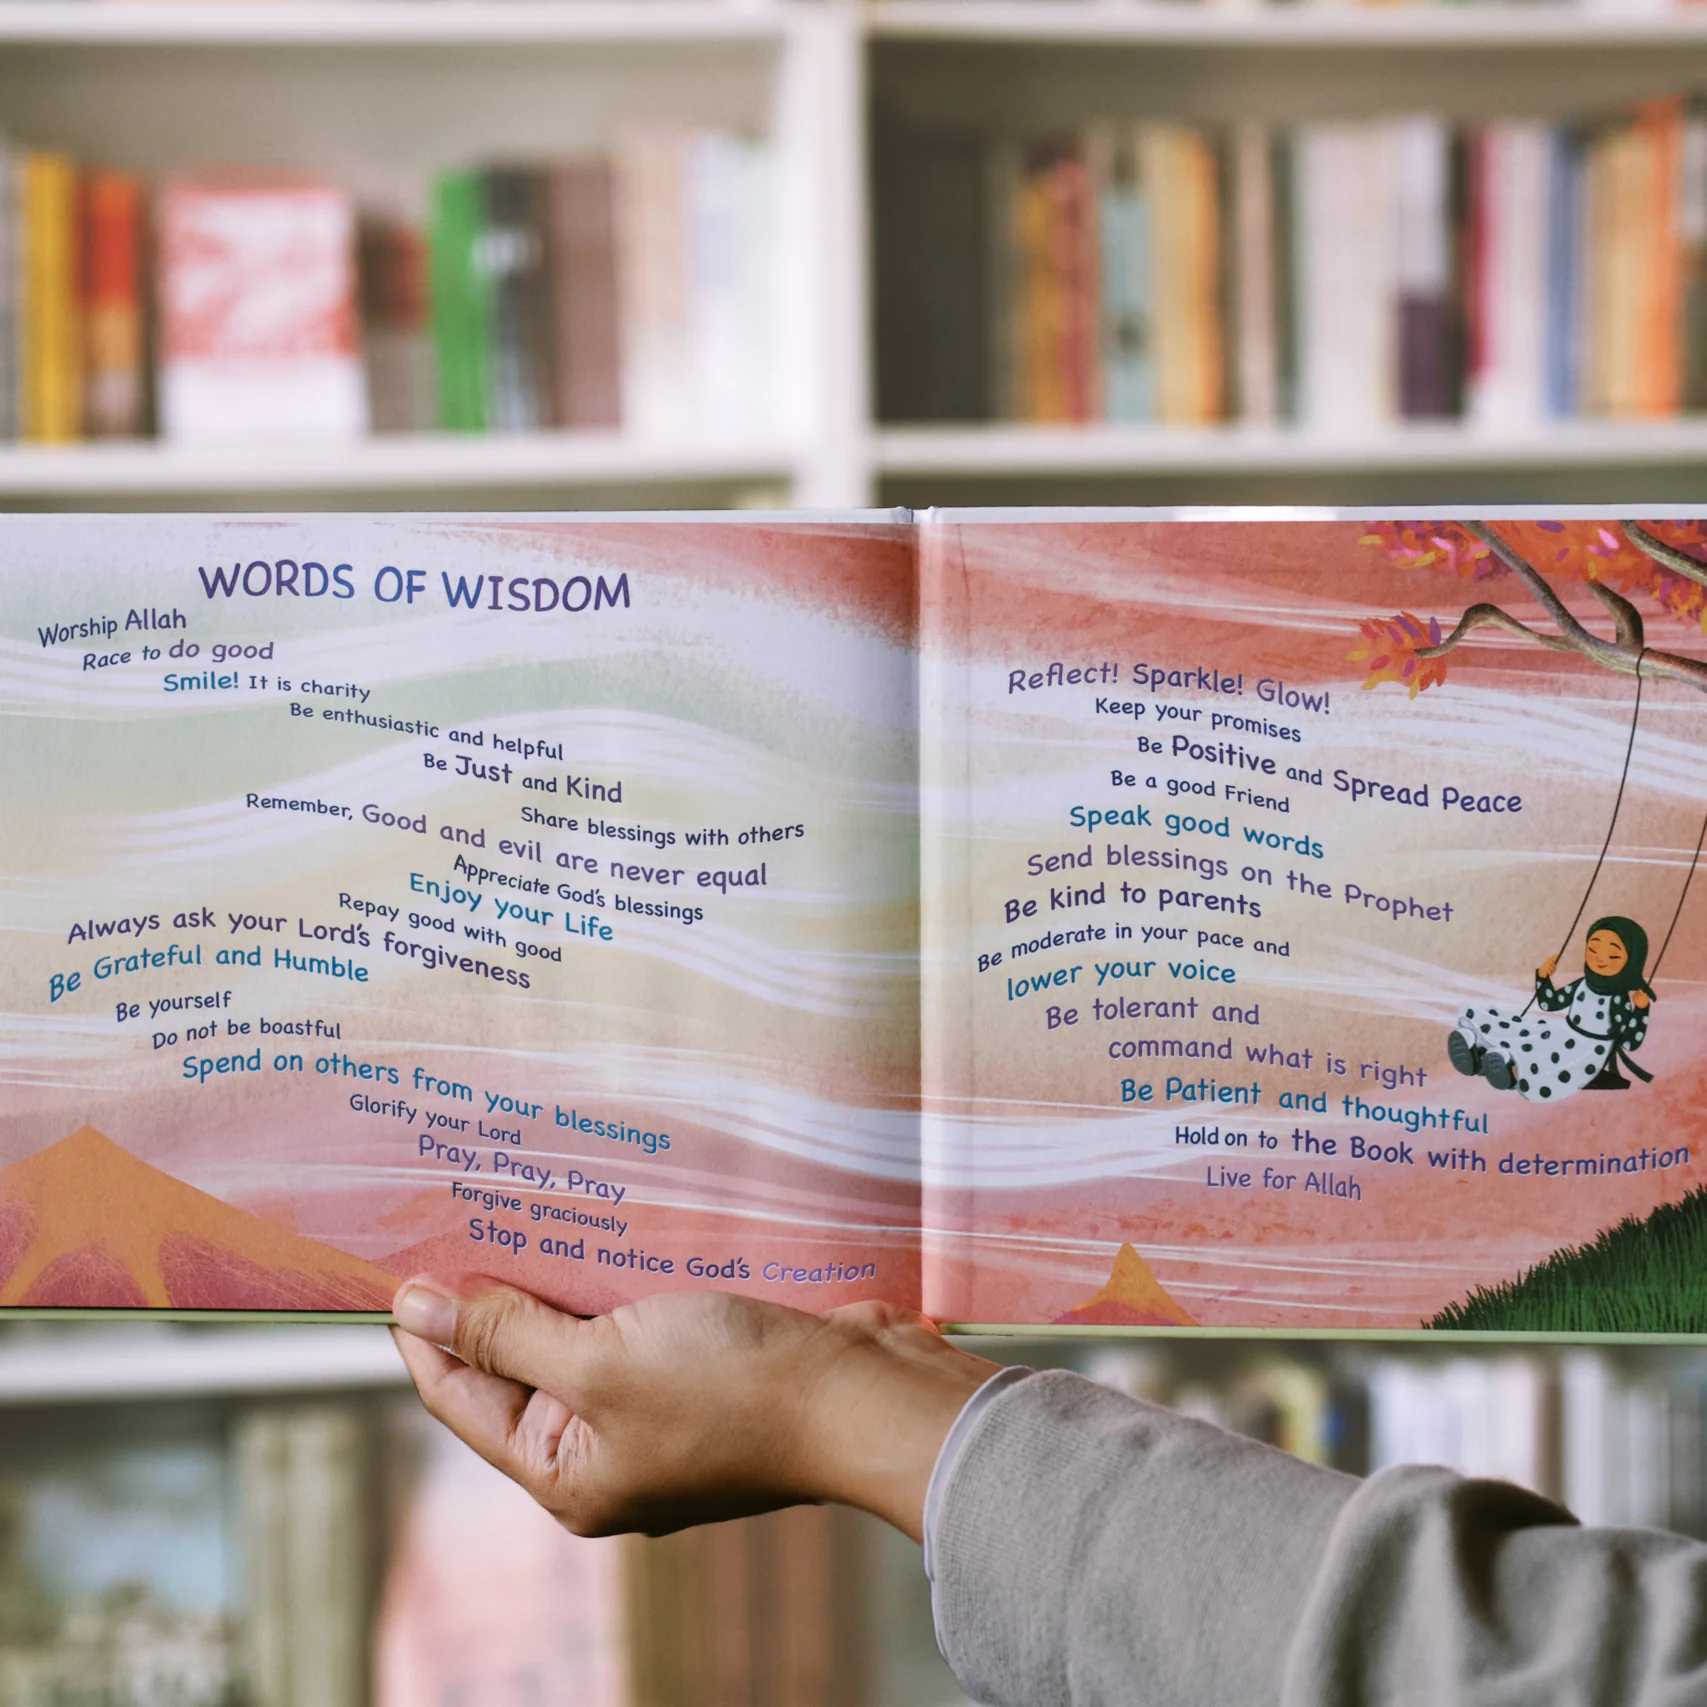 WORDS OF WISDOM
Worship Allah
Race to do good
Smile! It is charity
Be enthusiastic and helpful
Be Just and Kind
Share blessings with others
Remember, Good and evil are never equal
Appreciate God's blessings
Enjoy your Life
Repay good with good
Always ask your Lord's forgiveness
Be Grateful and Humble
Be yourself
Do not be boastful
Spend on others from your blessings
Glorify your Lord
Pray, Pray, Pray
Forgive graciously
Stop and notice God's Creation
Reflect! Sparkle! Glow!
Keep your promises
Be Positive and Spread Peace
Be a good Friend
Speak good words
Send blessings on the Prophet
Be kind to parents
Be moderate in your pace and
lower your voice
Be tolerant and
command what is right
Be Patient and thoughtful
Hold on to the Book with determination
Live for Allah